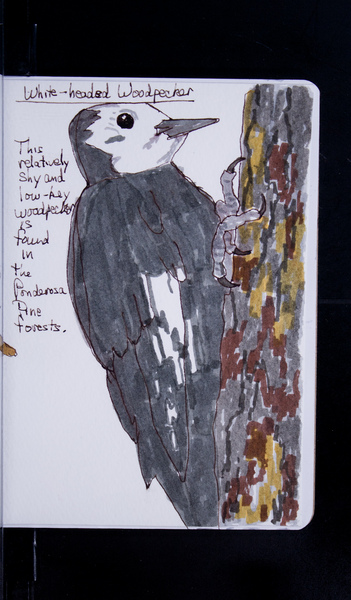 White-headed Woodpecker
This
relatively
shy and
low-key
woodpecker
is
found
in
the
Ponderosa
Pine
forests.